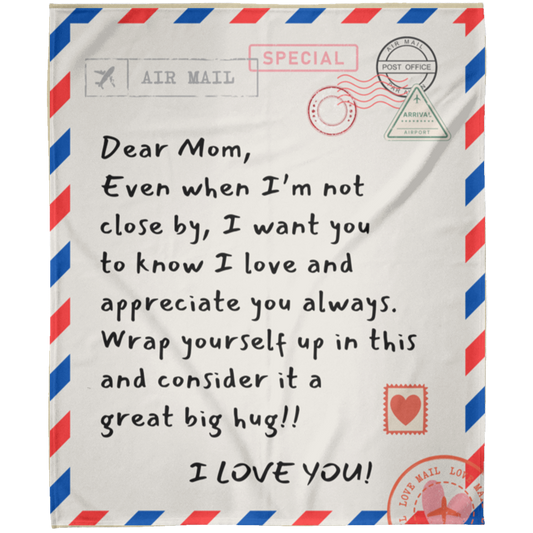 SPECIAL
AIR MAIL
AIR MAIL
POST OFFICE
ARRIVAL
AIRPORT
Dear Mom,
Even when I'm not
close by, I want you
to know I love and
appreciate you always.
Wrap yourself up in this
and consider it a
great big hug!!
I LOVE YOU!
LOVE MAIL LOV